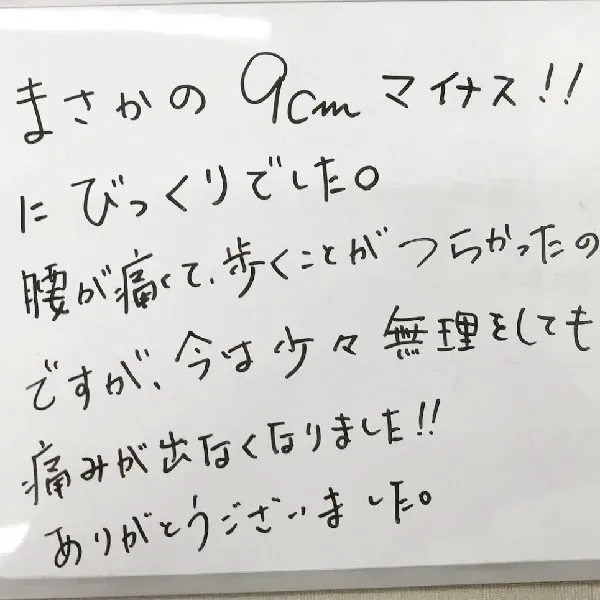 まさかの 9cm マイナス!!
にびっくりでした。
腰が痛くて、歩くことがつらかったの
ですが、今は少々無理をしても
痛みが出なくなりました!!
ありがとうございました。